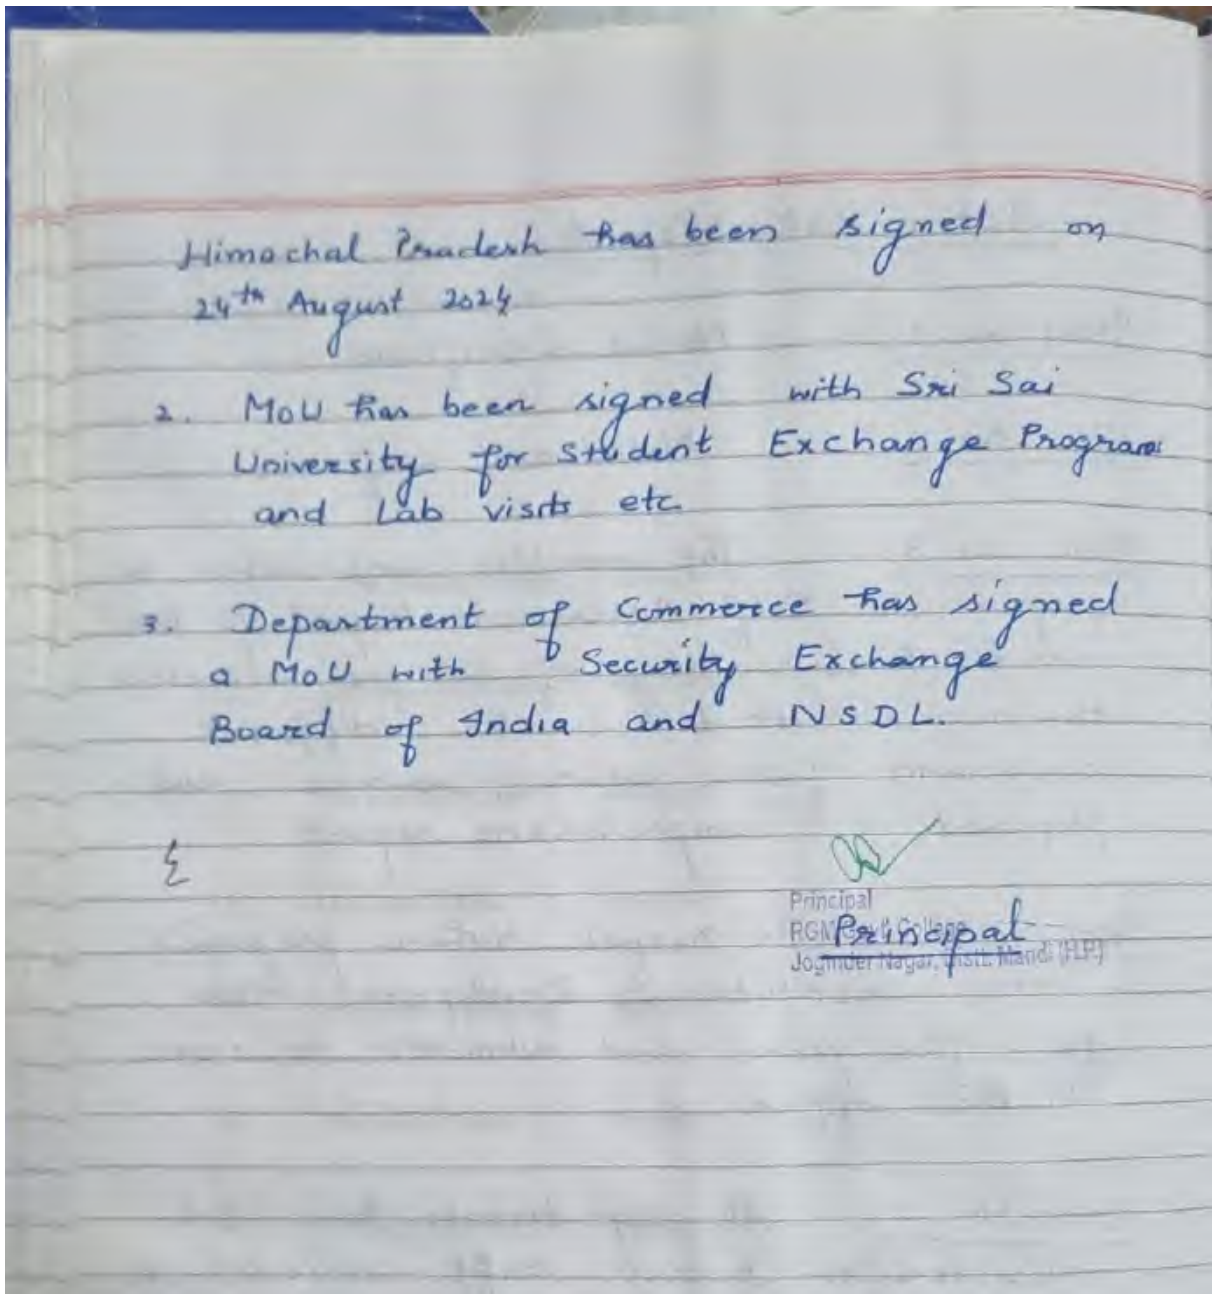 Himachal Pradesh has been signed on
24th August 2024
2. MoU has been signed with Sri Sai
University for Student Exchange Program
and Lab visits etc.
3. Department of Commerce has signed
a MoU with Security Exchange
Board of India and NSDL.
Principal
Principal
Joginder Nagar, Distt. Mandi (H.P.)